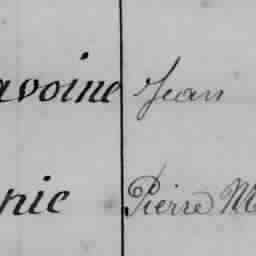 avoine Jean
nic Pierre M